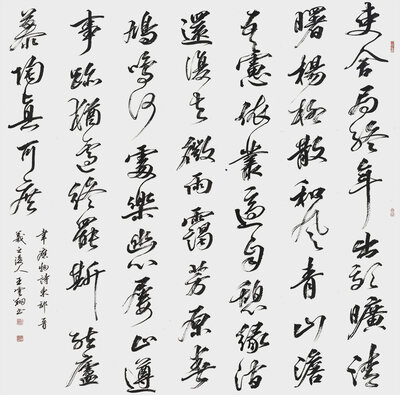 吏舍局終年出郊曠清
曙楊柳散和風青山澹
吾慮依叢適自憩緣澗
還復去微雨靄芳原春
鳩鳴何處樂幽心屢止遵
事跡猶遽終罷斯結廬
慕陶真可庶
韋應物詩東郊
羲之後人王書